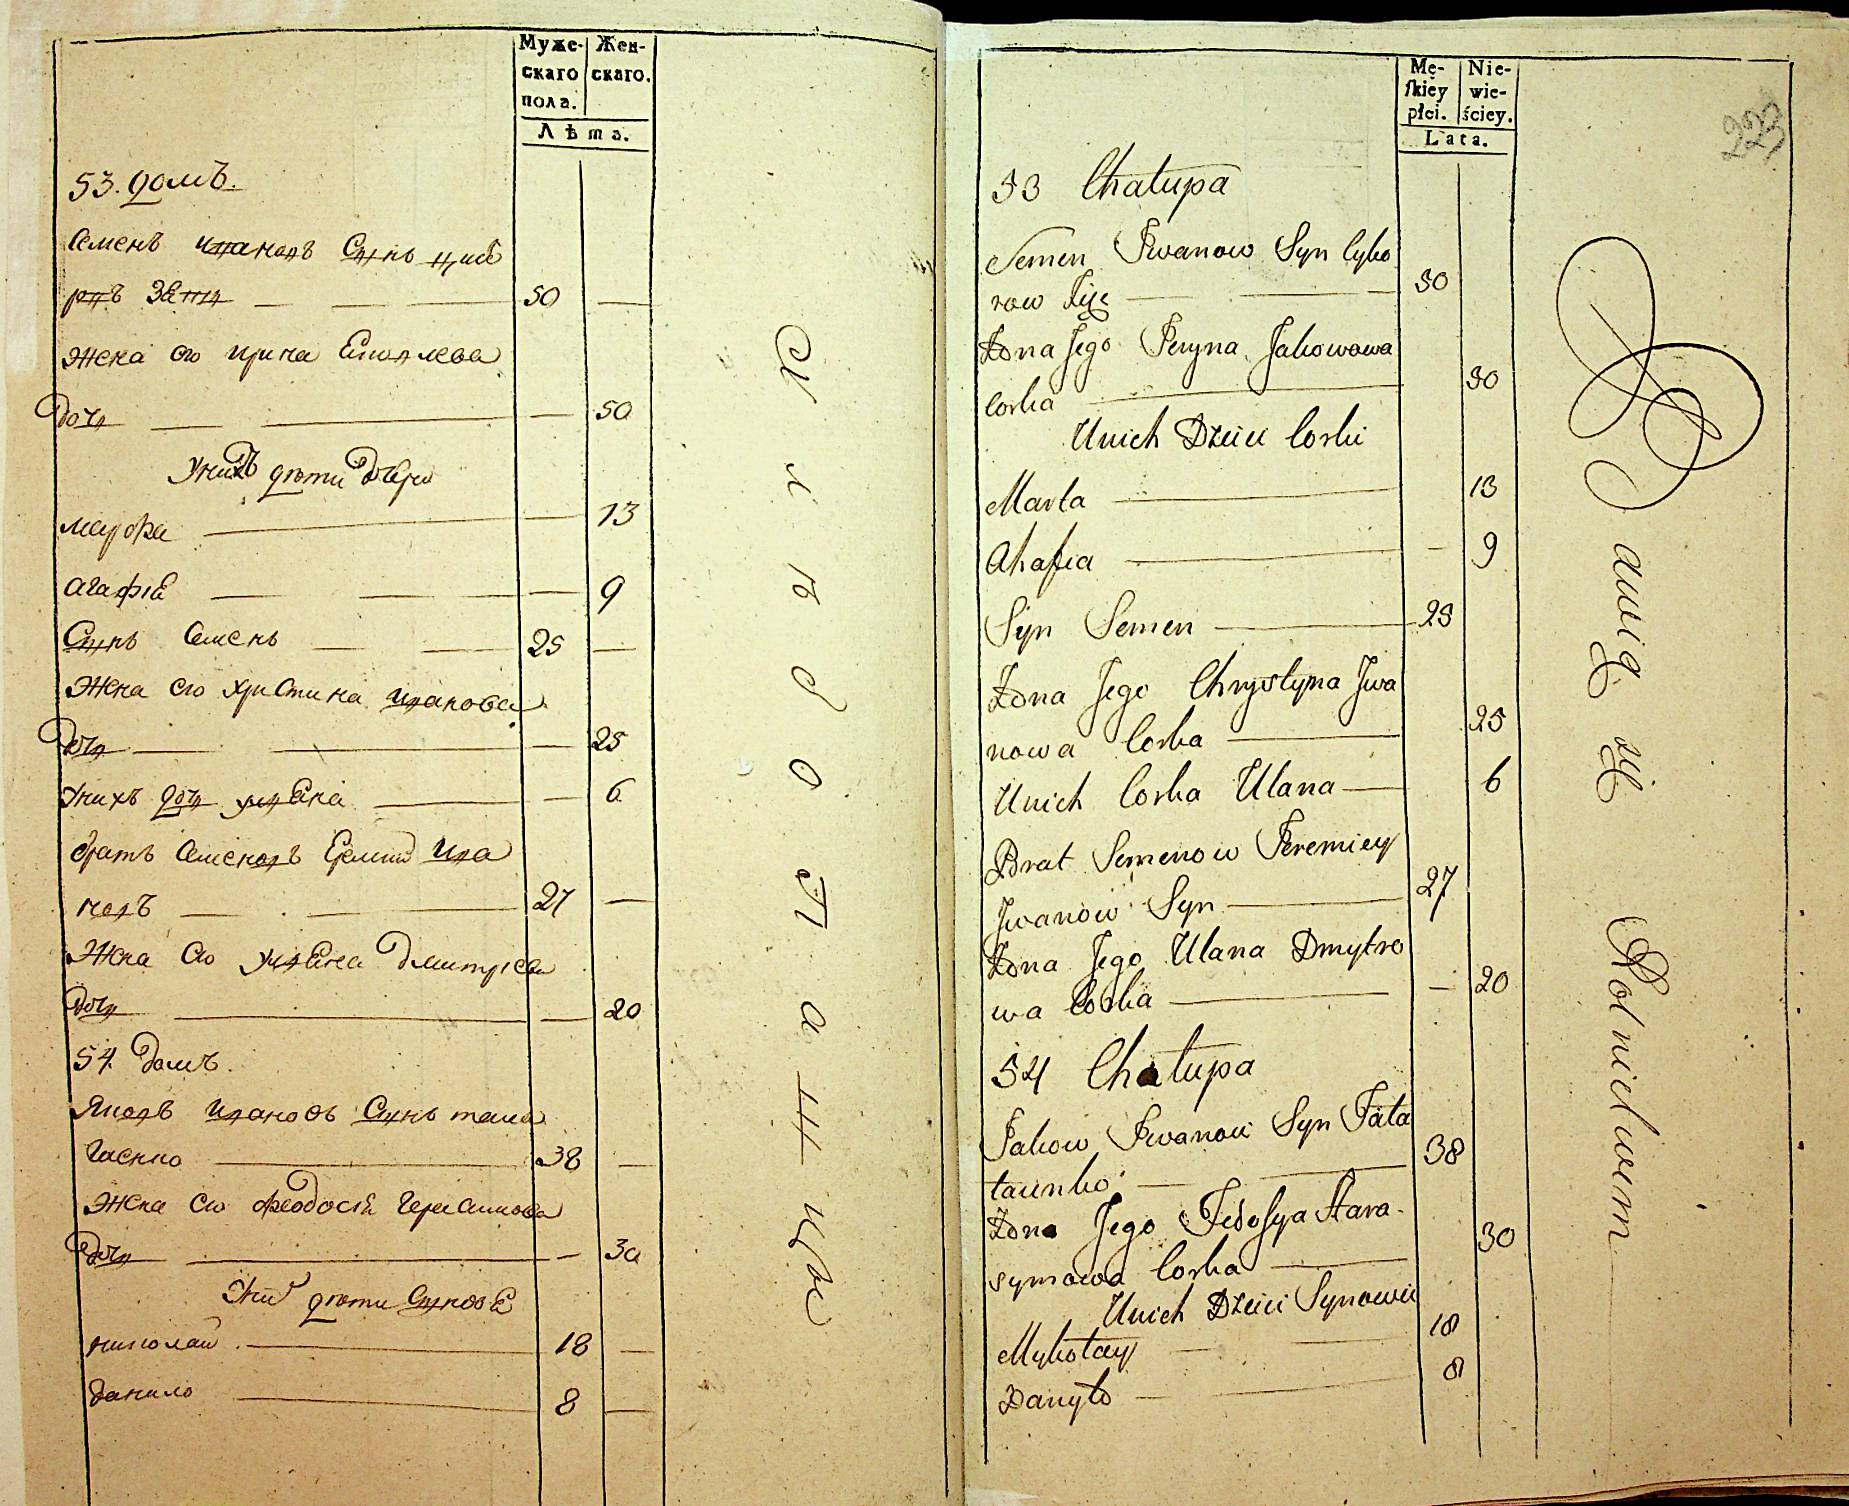 Муже-
скаго
пола.
Жен-
скаго.
Лѣта.
53. домъ.
Семенъ Ивановъ Сынъ циб
ровъ Зять 50
Жена его Ирина Яковлева
дочь 50
Унихъ дѣти дочери
Марфа 13
Агафія 9
Сынъ Семенъ 25
Жена его Христина Иванова
дочь 25
Унихъ дочь Уляна 6
братъ Семеновъ Еремий Ива
новъ 27
Жена его Уляна Дмитріева
дочь 20
54. домъ.
Яковъ Ивановъ Сынъ
38
Жена его Феодосія Герасимова
дочь 30
Уних дѣти Сыновя
николай 18
данило 8
Хлѣбопашцы
Mę-
skiey
płci.
Nie-
wie-
ściey.
Lata.
223
53 Chałupa
Semen Iwanow Syn Cybo
row 50
Żona Jego Jeryna Jakowowa
Corka 50
Unich Dzieci Corki
Marta 13
Ahafia 9
Syn Semen 25
Żona Jego Chrystyna Iwa
nowa Corka 25
Unich Corka Ulana 6
Brat Semenow Jeremiey
Iwanow Syn 27
Żona Jego Ulana Dmytro
wa Corka 20
54 Chałupa
Jakow Iwanow Syn Tata
38
Żona Jego Fedosya Hara-
symowa Corka 30
Unich Dzieci Synowie
Mykołay 18
Danyło 8
Bawią się Rolnictwem